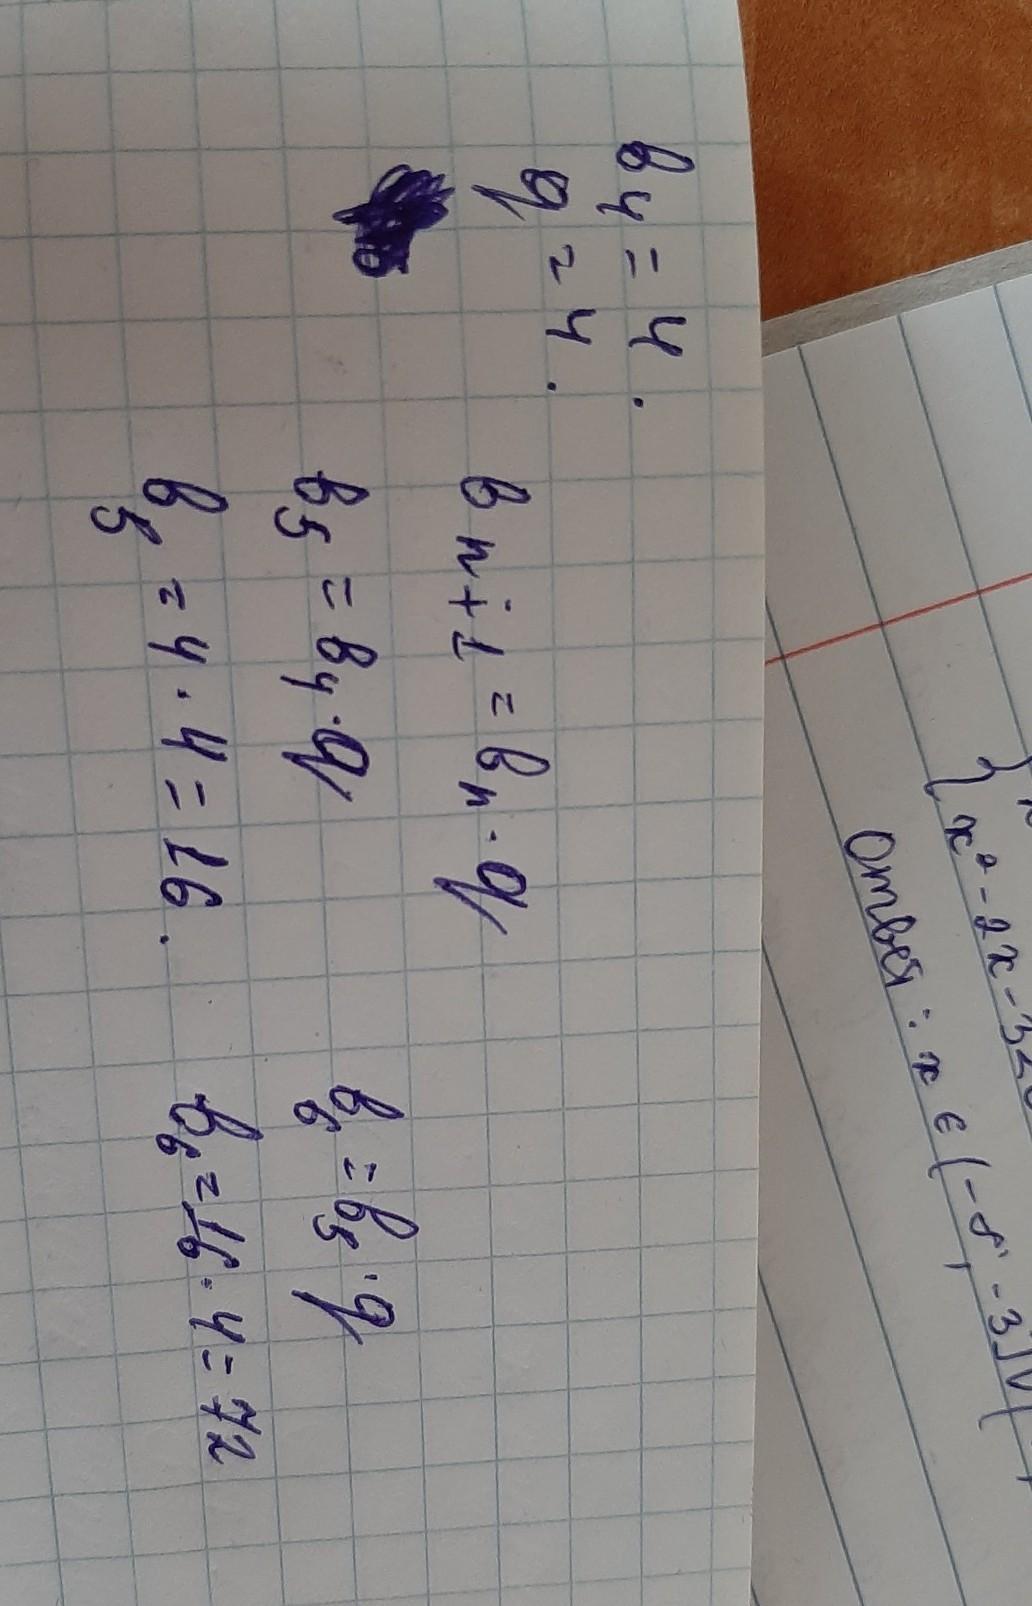 b₄ = 4.
q = 4.
bₙ₊₁ = bₙ · q
b₅ = b₄ · q
b₅ = 4 · 4 = 16.
b₆ = b₅ · q
b₆ = 16 · 4 = 72
{ x² - 2x - 3
Ответ : x ∈ (-8, -3]